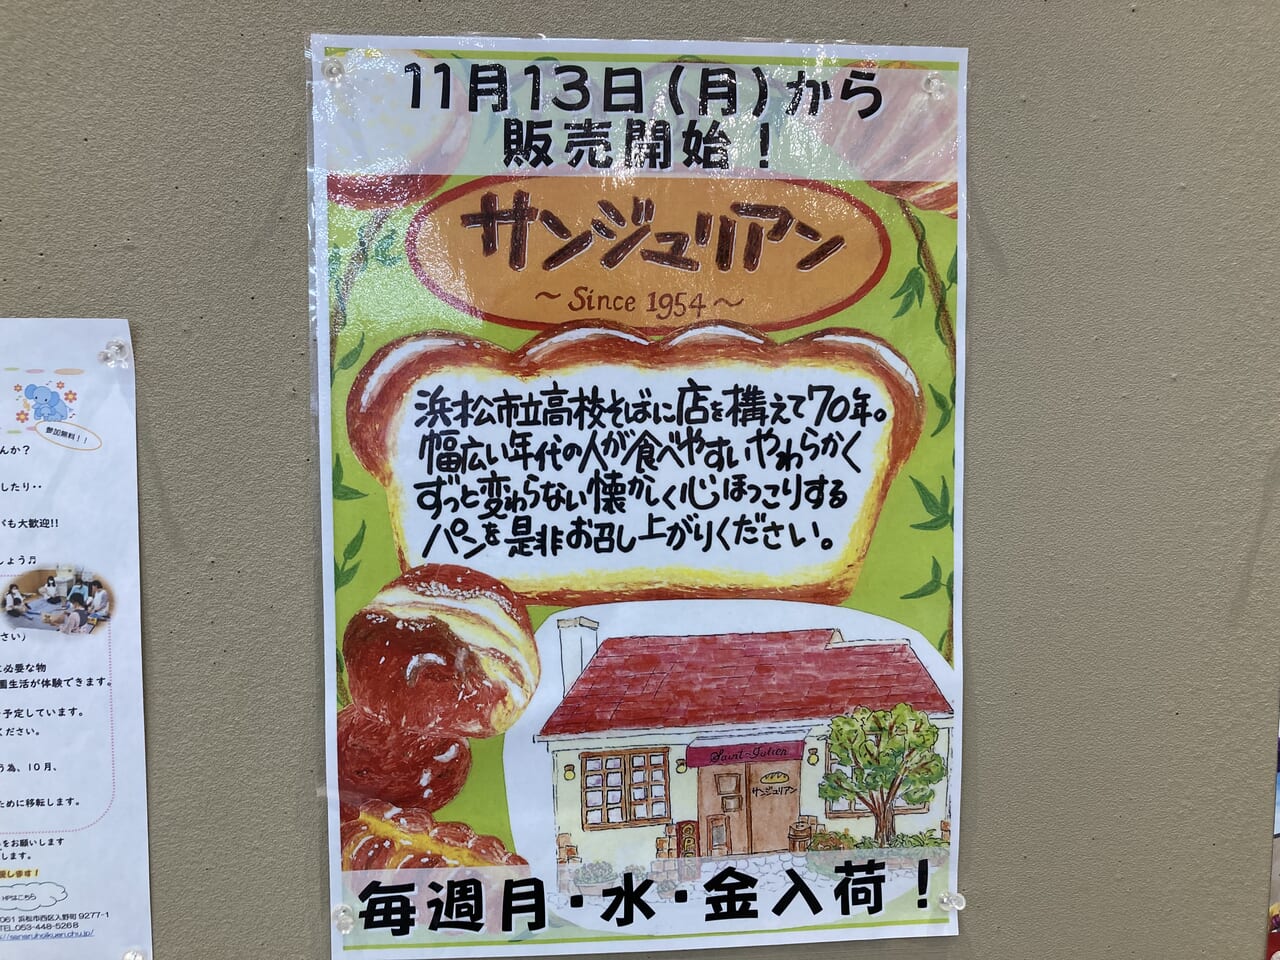 11月13日(月)から
販売開始！
サンジュリアン
～Since 1954～
浜松市立高校そばに店を構えて70年。
幅広い年代の人が食べやすいやわらかく
ずっと変わらない懐かしく心ほっこりする
パンを是非お召し上がりください。
Saint-Julien
サンジュリアン
OPEN
毎週月・水・金入荷！
参加無料！！
んか？
したり‥
バも大歓迎!!
しょう♬
さい）
に必要な物
園生活が体験できます。
予定しています。
ください。
う為、10月、
ために移転します。
をお願いします
します。
HPはこちら
061 浜松市西区入野町 9277-1
TEL 053-448-5268